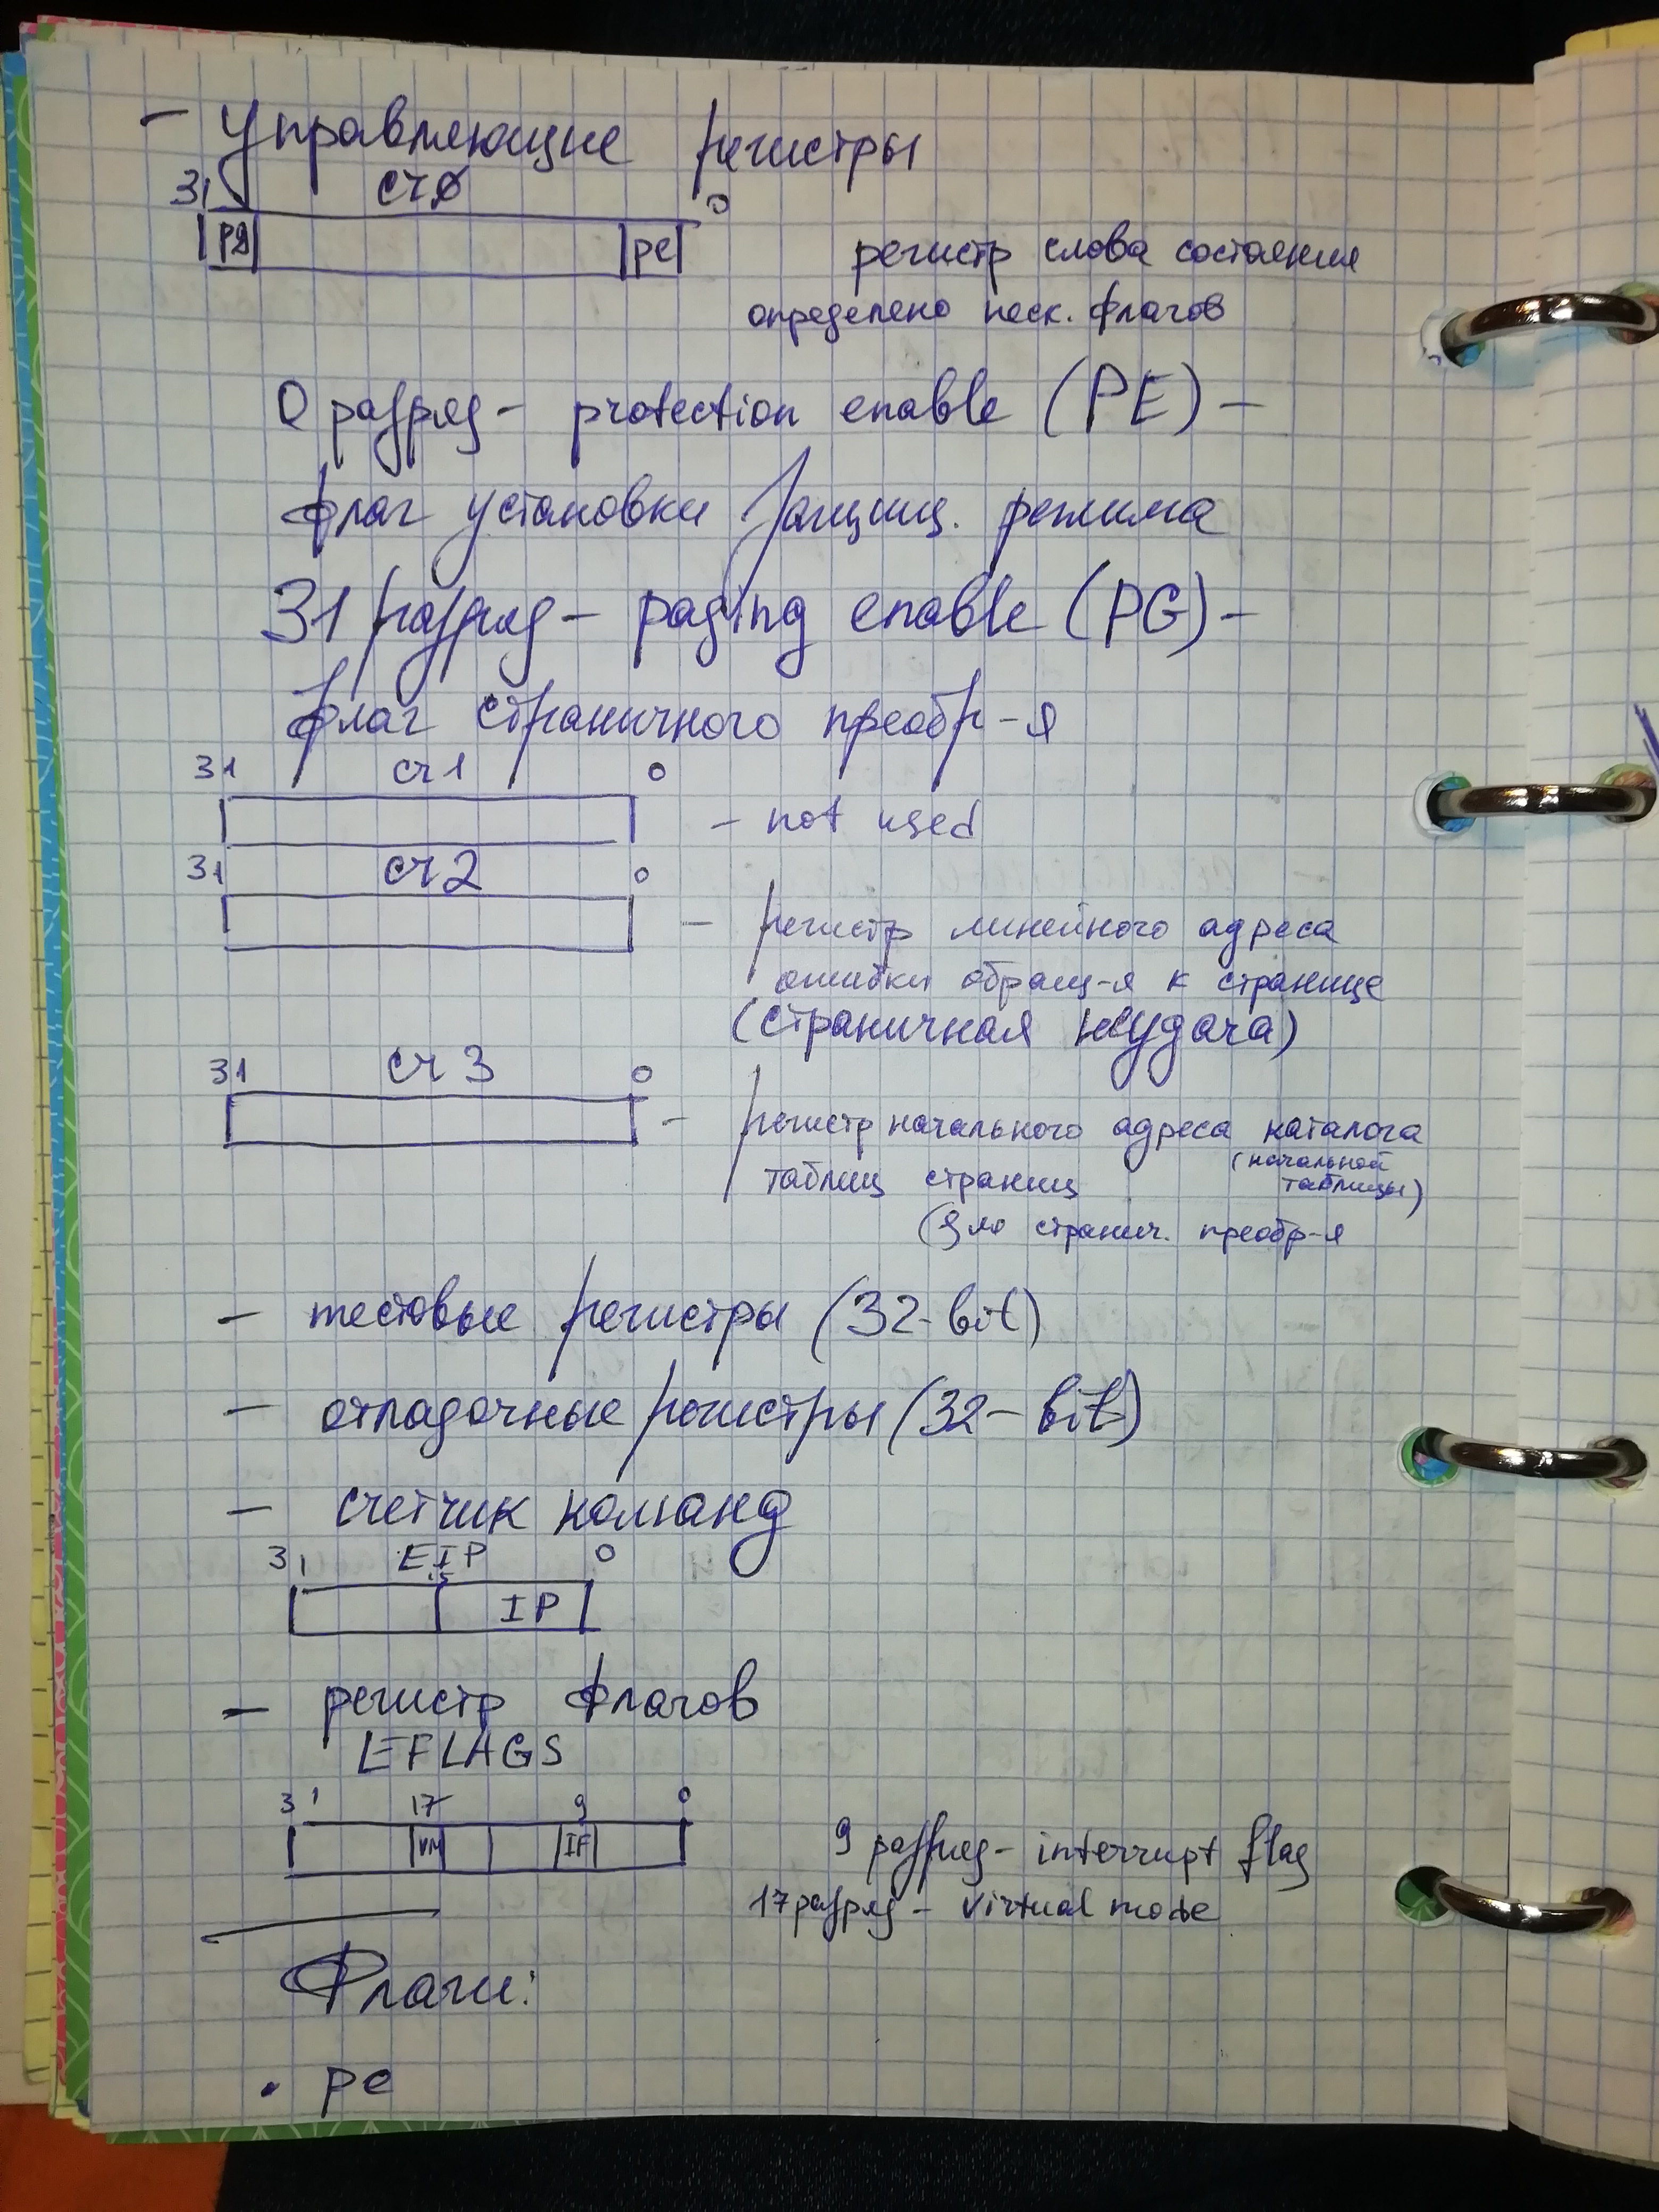 - Управляющие регистры
31 cr0 0
pg pe регистр слова состояния
определено неск. флагов
0 разряд - protection enable (PE) -
флаг установки защищ. режима
31 разряд - paging enable (PG) -
флаг страничного преобр-я
31 cr1 0
- not used
31 cr2 0
- регистр линейного адреса
ошибки обращ-я к странице
(страничная неудача)
31 cr3 0
- регистр начального адреса каталога
таблиц страниц (начальной таблицы)
(для странич. преобр-я
- тестовые регистры (32-bit)
- отладочные регистры (32-bit)
- счетчик команд
31 EIP 0
15
IP
- регистр флагов
EFLAGS
31 17 9 0
VM IF 9 разряд - interrupt flag
17 разряд - virtual mode
Флаги:
• pe